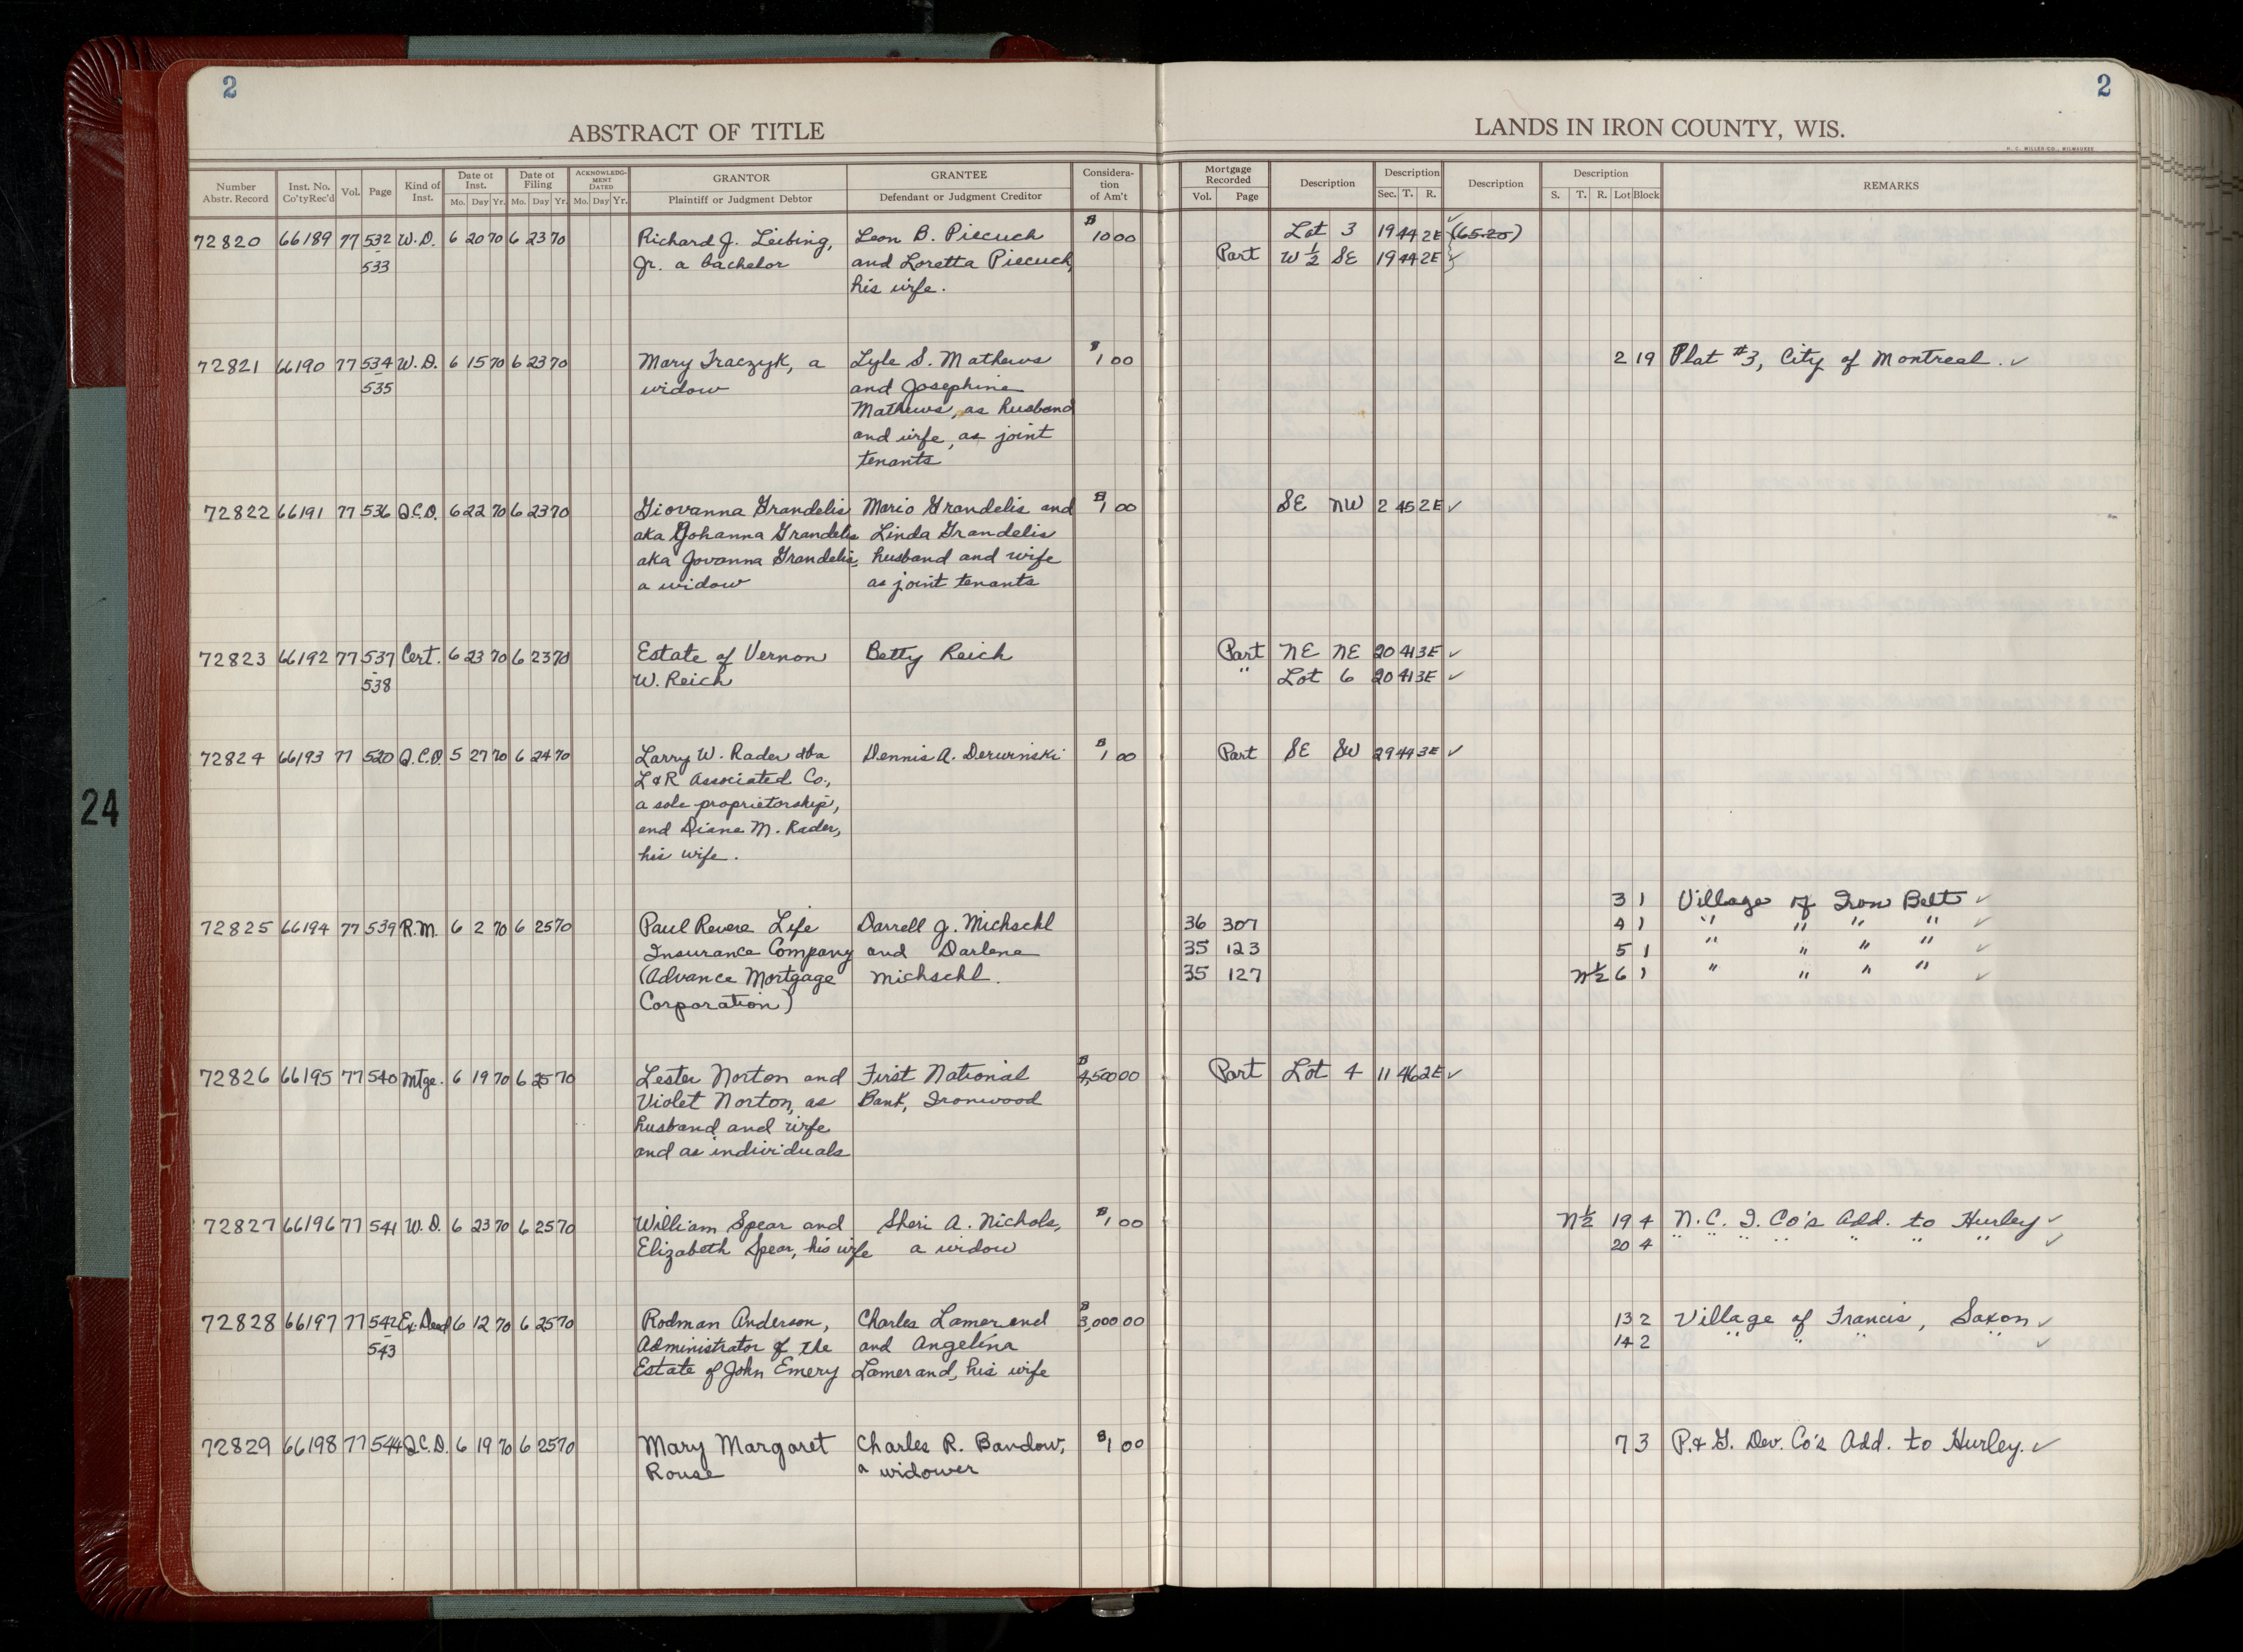 2
2
ABSTRACT OF TITLE
LANDS IN IRON COUNTY, WIS.
H. C. MILLER CO., MILWAUKEE
Number Abstr. Record | Inst. No. Co'ty Rec'd | Vol. | Page | Kind of Inst. | Date of Inst. Mo. Day Yr. | Date of Filing Mo. Day Yr. | ACKNOWLEDG-MENT DATED Mo. Day Yr. | GRANTOR Plaintiff or Judgment Debtor | GRANTEE Defendant or Judgment Creditor | Considera-tion of Am't | Mortgage Recorded Vol. Page | Description | Description Sec. T. R. | Description | Description S. T. R. Lot Block | REMARKS
72820 66189 77 532 W.D. 6 20 70 6 23 70 Richard J. Leibing, Leon B. Piecuch $10 00 Lot 3 19 44 2E ✓ (65.25)
533 Jr. a bachelor and Loretta Piecuch, Part W 1/2 SE 19 44 2E ✓
his wife.
72821 66190 77 534 W.D. 6 15 70 6 23 70 Mary Traczyk, a Lyle S. Mathews $1 00 2 19 Plat #3, City of Montreal. ✓
- 535 widow and Josephine
Mathews, as husband
and wife, as joint
tenants
72822 66191 77 536 Q.C.D. 6 22 70 6 23 70 Giovanna Grandelis Mario Grandelis and $1 00 SE NW 2 45 2E ✓
aka Johanna Grandelis Linda Grandelis
aka Jovanna Grandelis, husband and wife
a widow as joint tenants
72823 66192 77 537 Cert. 6 23 70 6 23 70 Estate of Vernon Betty Reich Part NE NE 20 41 3E ✓
- 538 W. Reich " Lot 6 20 41 3E ✓
72824 66193 77 520 Q.C.D. 5 27 70 6 24 70 Larry W. Rader dba Dennis A. Derwinski $1 00 Part SE SW 29 44 3E ✓
L&R Associated Co.,
a sole proprietorship,
and Diane M. Rader,
his wife.
3 1 Village of Iron Belt ✓
72825 66194 77 539 R.M. 6 2 70 6 25 70 Paul Revere Life Darrell J. Michschl 36 307 4 1 " " " " ✓
Insurance Company and Darlene 35 123 5 1 " " " " ✓
(Advance Mortgage Michschl. 35 127 N½ 6 1 " " " " ✓
Corporation)
72826 66195 77 540 Mtge. 6 19 70 6 25 70 Lester Norton and First National $4,500 00 Part Lot 4 11 46 2E ✓
Violet Norton, as Bank, Ironwood
husband and wife
and as individuals
72827 66196 77 541 W.D. 6 23 70 6 25 70 William Spear and Sheri A. Nichols, $1 00 N½ 19 4 N.C. I. Co's Add. to Hurley ✓
Elizabeth Spear, his wife a widow 20 4 " " " " " " " ✓
72828 66197 77 542 Ex. Deed 6 12 70 6 25 70 Rodman Anderson, Charles Lamerand $3,000 00 13 2 Village of Francis, Saxon ✓
- 543 Administrator of the and Angelina 14 2 " " " " ✓
Estate of John Emery Lamerand, his wife
72829 66198 77 544 Q.C.D. 6 19 70 6 25 70 Mary Margaret Charles R. Bandow, $1 00 7 3 P.& G. Dev. Co's Add. to Hurley. ✓
Rouse a widower
24